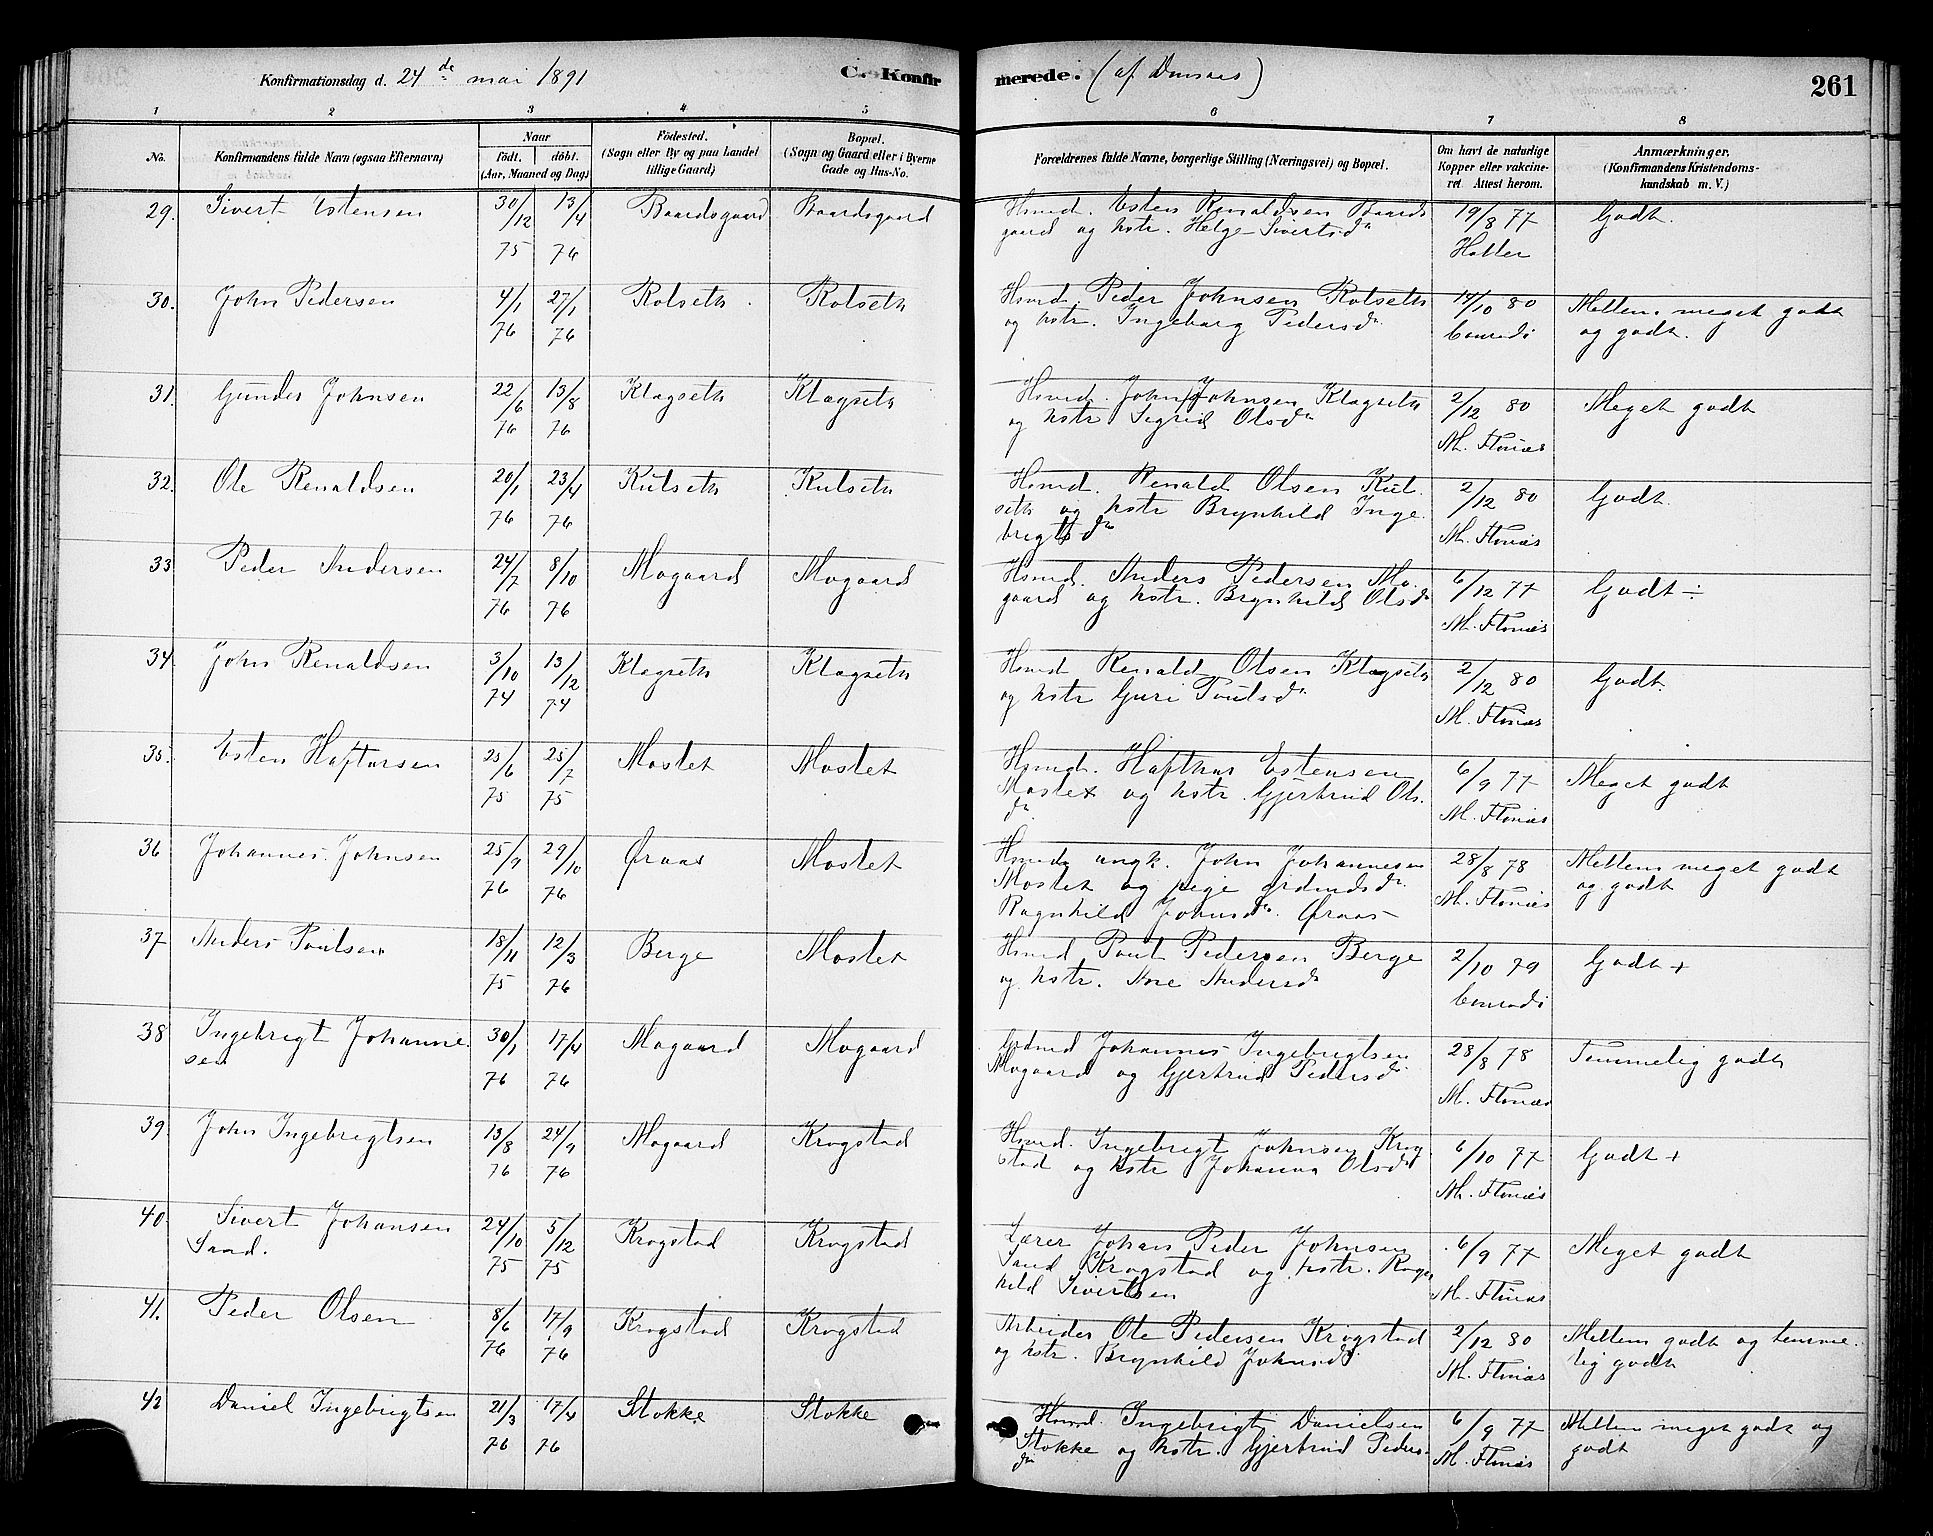 Konfirmationsdag d. 24de mai 1891
C. Konfirmerede. (af
261
1 2 3 4 5 6 7 8
No.
Konfirmandens fulde Navn (ogsaa Efternavn)
Naar
födt. döbt.
(Aar, Maaned og Dag)
Födested.
(Sogn eller By og paa Landet
tillige Gaard)
Bopæl.
(Sogn og Gaard eller i Byerne
Gade og Hus-No.
Forældrenes fulde Navne, borgerlige Stilling (Næringsvei) og Bopæl.
Om havt de naturlige
Kopper eller vakcine-
ret. Attest herom.
Anmærkninger.
(Konfirmandens Kristendoms-
kundskab m. V.)
29. Sivert Estensen 30/12 75 13/4 76 Baardsgaard Baardsgaard
Hsmd. Esten Renaldsen Baards
gaard og hstr. Helge Sivertsdr
19/8 77
Holler
Godt.
30. John Pedersen 4/1 76 27/1 76 Rolseth Rolseth
Hsmd. Peder Johnsen Rolseth
og hstr. Ingeborg Pedersdr
14/10 80
Conradi
Mellem meget godt
og godt.
31. Gunder Johnsen 22/6 76 13/8 76 Klagseth Klagseth
Hsmd. John Johnsen Klagseth
og hstr Sigrid Olsdr
2/12 80
M. Flønæs
Meget godt
32. Ole Renaldsen 20/1 76 23/4 76 Kulseth Kulseth
Hsmd. Renald Olsen Kul-
seth og hstr Brynhild Inge
brigtsdr
2/12 80
M. Flønæs
Godt.
33 Peder Andersen 24/7 76 8/10 76 Mogaard Mogaard
Hsmd. Anders Pedersen Mo-
gaard og hstr. Brynhild Olsdr
6/12 77
M. Flønæs
Godt ÷
34 John Renaldsen 3/10 74 13/12 74 Klagseth Klagseth
Hsmd Renald Olsen Klagseth
og hstr Guri Poulsdr
2/12 80
M. Flønæs
Godt.
35. Esten Haftorsen 25/6 75 25/7 75 Moslet Moslet
Hsmd. Hafthor Estensen
Moslet og hstr. Gjertrud Ols.
dr
6/9 77
M. Flønæs
Meget godt
36 Johannes Johnsen 25/9 76 29/10 76 Øraas Moslet
ungk. John Johannesen
Moslet og pige
Ragnhild Johnsdr. Øraas
28/8 78
M. Flønæs
Mellem meget godt
og godt
37 Anders Poulsen 18/11 75 12/3 76 Berge Moslet
Hsmd Poul Pedersen Berge
og hstr. Ane Andersdr
2/10 79
Conradi
Godt +
38 Ingebrigt Johanne
sen 30/1 76 17/4 76 Mogaard Mogaard
Gdmd Johannes Ingebrigtsen
Mogaard og Gjertrud Pedersdr
28/8 78
M. Flønæs
Temmelig godt
39. John Ingebrigtsen 13/8 76 24/9 76 Mogaard Krogstad
Hsmd. Ingebrigt Johnsen Krog
stad og hstr Johanna Olsdr
6/10 77
M. Flønæs
Godt +
40. Sivert Johansen
Sand. 24/10 75 5/12 75 Krogstad Krogstad
Lærer Johan Peder Johnsen
Sand Krogstad og hstr. Ragn
hild Sivertsen
6/9 77
M. Flønæs
Meget godt
41. Peder Olsen 8/6 76 17/9 76 Krogstad Krogstad
Arbeider Ole Pedersen Krogstad
og hstr. Brynhild Johnsdr
2/12 80
M. Flønæs
Mellem godt og temme-
lig godt
42 Daniel Ingebrigtsen 21/3 76 17/4 76 Stokke Stokke
Hsmd. Ingebrigt Danielsen
Stokke og hstr. Gjertrud Peders.
dr
6/9 77
M. Flønæs
Mellem meget godt og
godt